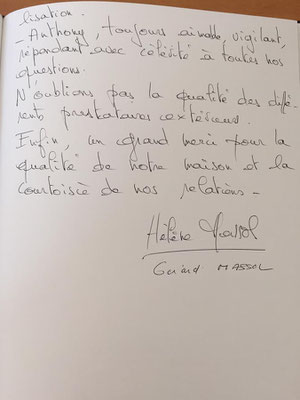 lisation.
- Anthony, toujours aimable, vigilant,
répondant avec célérité à toutes nos
questions.
N'oublions pas la qualité des diffé-
rents prestataires extérieurs.
Enfin, un grand merci pour la
qualité de notre maison et la
courtoisie de nos relations -
Hélène Massol
Gérard MASSOL